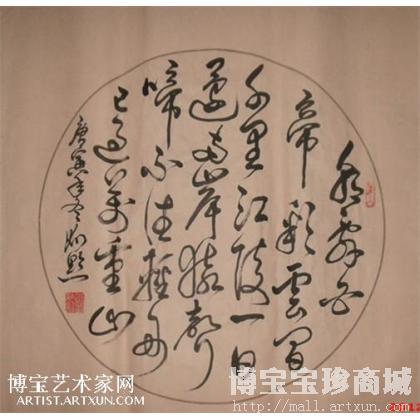 朝辞白
帝彩雲間
千里江陵一日
還两岸猿聲
啼不住輕舟
已過萬重山
庚寅年冬
博宝艺术家网
ARTIST.ARTXUN.COM
博宝宝珍商城
http://mall.artxun.com/